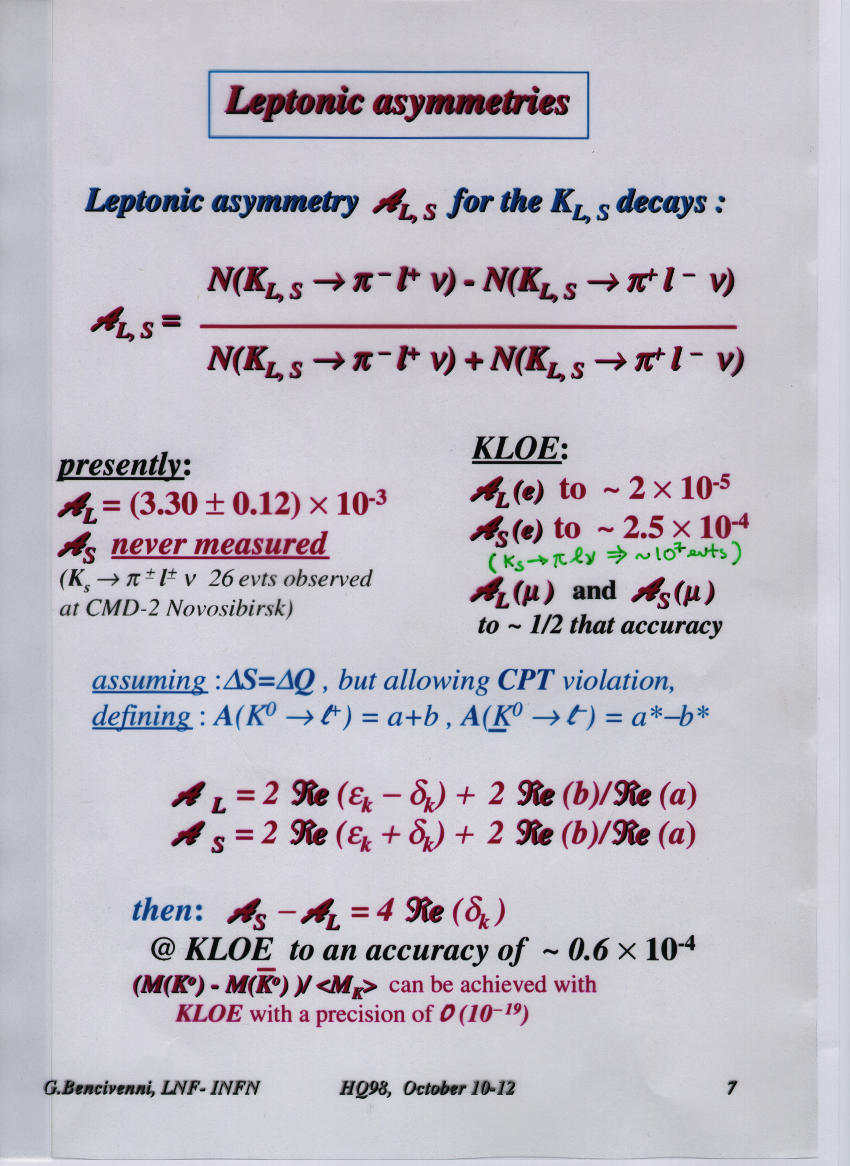 Leptonic asymmetries
Leptonic asymmetry 𝒜L, S for the KL, S decays :
N(KL, S → π⁻ l⁺ ν) - N(KL, S → π⁺ l⁻ ν)
𝒜L, S =
N(KL, S → π⁻ l⁺ ν) + N(KL, S → π⁺ l⁻ ν)
presently:
𝒜L = (3.30 ± 0.12) × 10⁻³
𝒜S never measured
(Ks → π± l± ν 26 evts observed
at CMD-2 Novosibirsk)
KLOE:
𝒜L(e) to ~ 2 × 10⁻⁵
𝒜S(e) to ~ 2.5 × 10⁻⁴
(Ks → π l ν ⇒ ~10⁷ evts)
𝒜L(μ) and 𝒜S(μ)
to ~ 1/2 that accuracy
assuming : ΔS=ΔQ , but allowing CPT violation,
defining : A(K⁰ → ℓ⁺) = a+b , A(K̲⁰ → ℓ⁻) = a*–b*
𝒜L = 2 ℜe (εk − δk) + 2 ℜe (b)/ℜe (a)
𝒜S = 2 ℜe (εk + δk) + 2 ℜe (b)/ℜe (a)
then: 𝒜S − 𝒜L = 4 ℜe (δk)
@ KLOE to an accuracy of ~ 0.6 × 10⁻⁴
(M(K⁰) - M(K̅⁰) )/ <MK> can be achieved with
KLOE with a precision of O (10⁻¹⁹)
G.Bencivenni, LNF- INFN HQ98, October 10-12 7